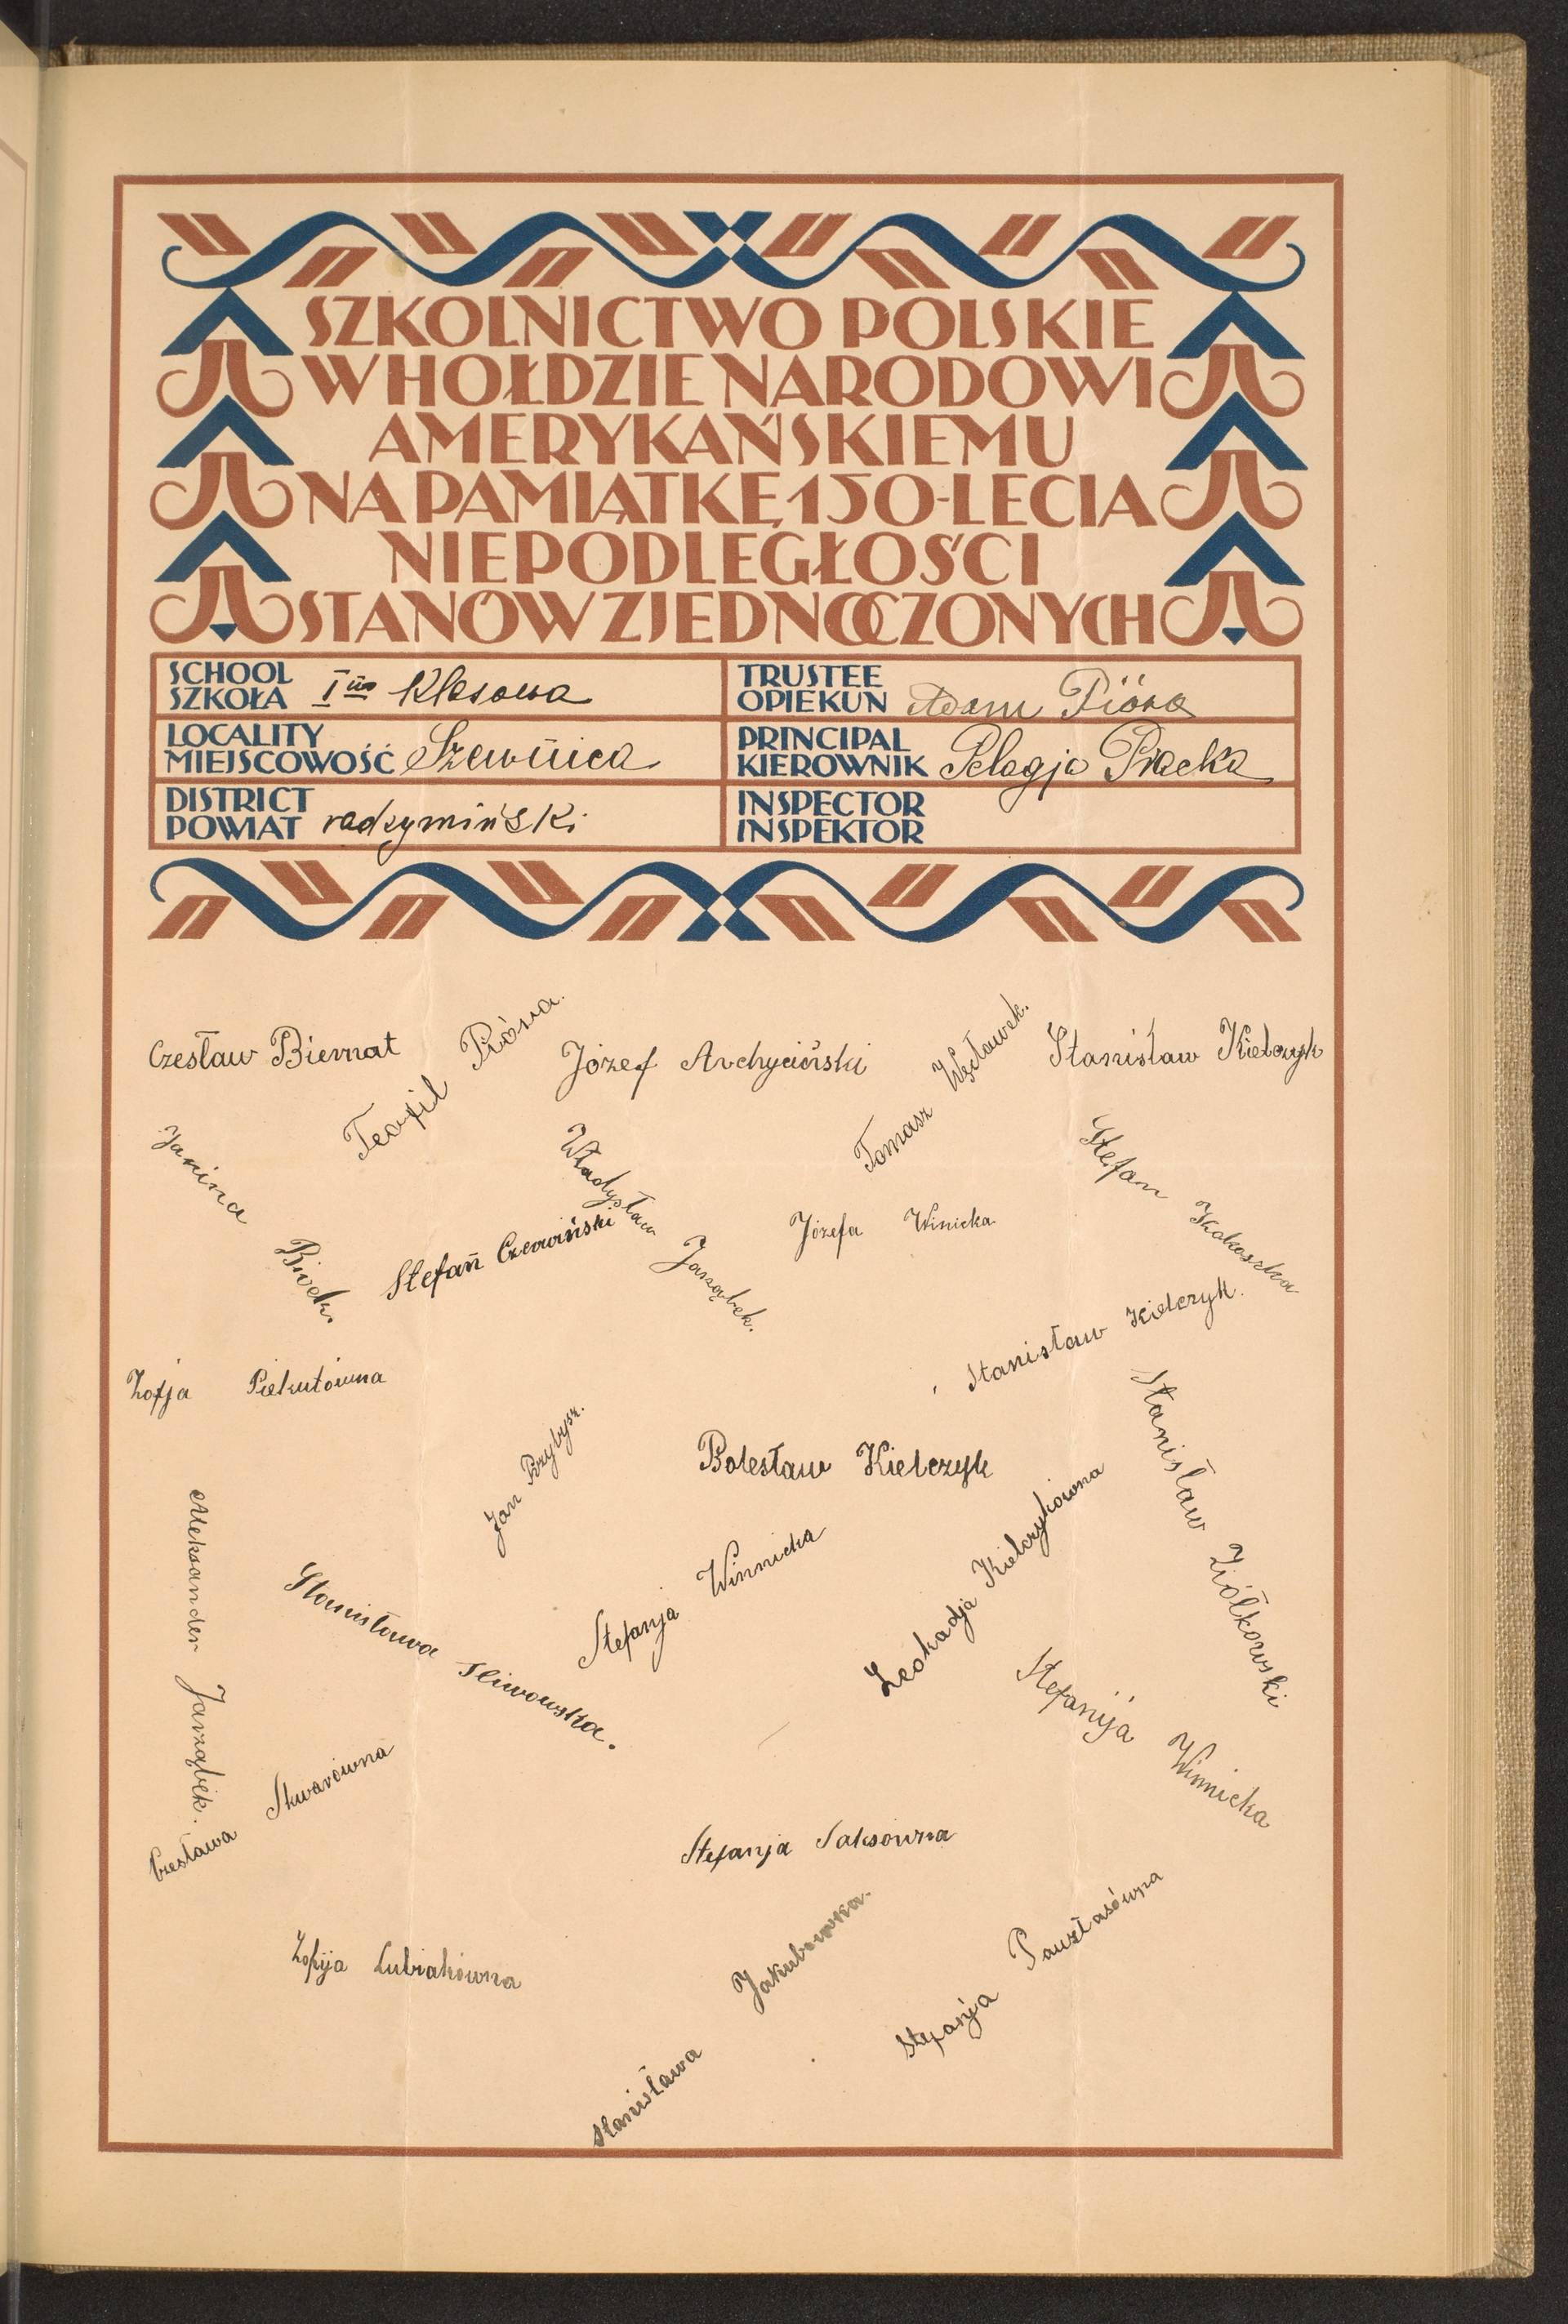 SZKOLNICTWO POLSKIE
W HOŁDZIE NARODOWI
AMERYKAŃSKIEMU
NA PAMIĄTKĘ 150-LECIA
NIEPODLEGŁOŚCI
STANÓW ZJEDNOCZONYCH
SCHOOL
SZKOŁA I Klasowa
TRUSTEE
OPIEKUN Adam Pióro
LOCALITY
MIEJSCOWOŚĆ Szewnica
PRINCIPAL
KIEROWNIK Pelagja Pracka
DISTRICT
POWIAT radzymiński
INSPECTOR
INSPEKTOR
Czesław Biernat
Teofil Pióra.
Józef Archyciński
Tomasz Węsławek.
Stanisław Kielczyk
Janina Birek.
Stefan Czerwiński
Władysław Jarząbek.
Józefa Winicka
Stefan Kokoszka
Zofja Piekutówna
Stanisław Kielczyk.
Jan Przybysz.
Bolesław Kielczyk
Stanisław Ziółkowski
Aleksander Jarząbek.
Stanisława Sliwowska.
Stefanja Winnicka
Leokadja Kielczykówna
Stefanija Winnicka
Czesława Skwarówna
Stefanja Saksowna
Zofija Lubiakówna
Stanisława Jakubowska.
Stefanja Pausztasówna